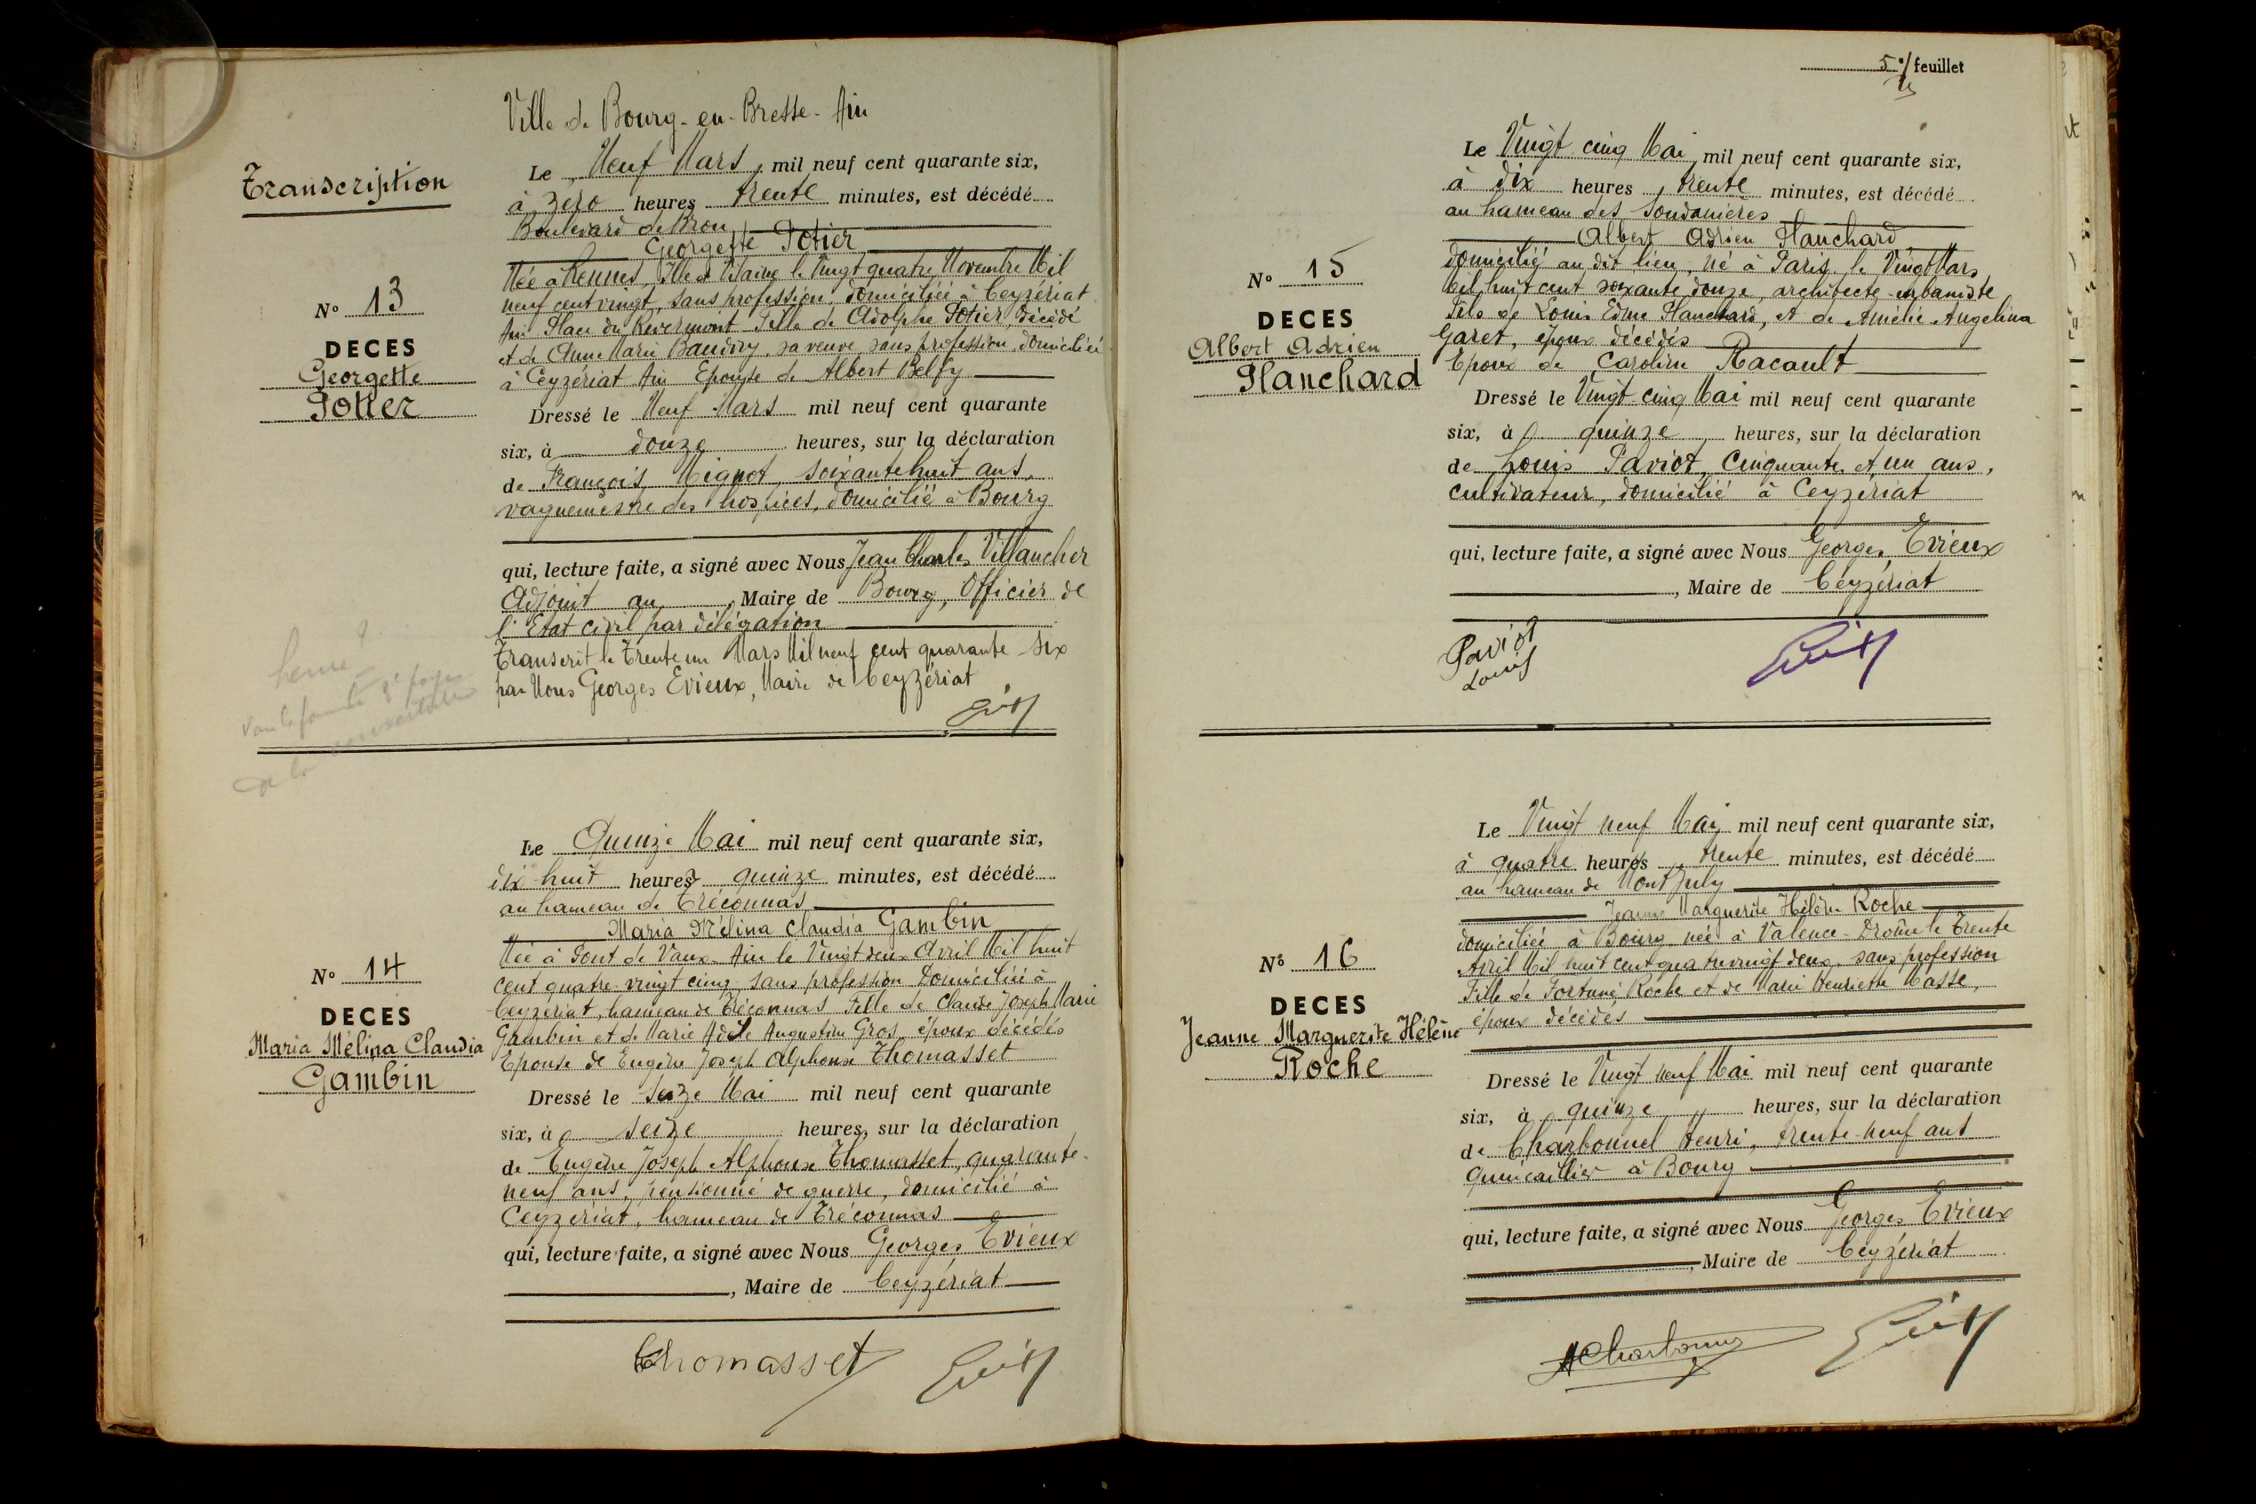 Ville de Bourg-en-Bresse-Ain
Transcription
Le Neuf Mars, mil neuf cent quarante six,
à zéro heures trente minutes, est décédé
Boulevard de Brou
Georgette Potier
Née à Rennes, Ille et Vilaine le Vingt quatre Novembre Mil
neuf cent vingt, sans profession, domiciliée à Ceyzériat
Ain Place du Revermont Fille de Adolphe Potier, décédé
et de Anne Marie Baudry, sa veuve sans profession, domiciliée
à Ceyzériat Ain Epouse de Albert Belfy
N° 13
DECES
Georgette
Potier
Dressé le Neuf Mars mil neuf cent quarante
six, à douze heures, sur la déclaration
de François Mignot, soixante huit ans,
vaguemestre des hospices, domicilié à Bourg
qui, lecture faite, a signé avec Nous Jean Charles Villancher
Adjoint au Maire de Bourg, Officier de
l'Etat civil par délégation
Transcrit le Trente un Mars Mil neuf cent quarante six
par Nous Georges Evieux, Maire de Ceyzériat
Le Quinze Mai mil neuf cent quarante six,
dix huit heures quinze minutes, est décédé
au hameau de Tréconnas
Maria Mélina Claudia Gambin
Née à Pont de Vaux Ain le Vingt deux Avril Mil huit
cent quatre-vingt cinq, sans profession Domiciliée à
Ceyzériat, hameau de Tréconnas Fille de Claude Joseph Marie
Gambin et de Marie Adèle Augustine Gros, époux décédés
Epouse de Eugène Joseph Alphonse Thomasset
N° 14
DECES
Maria Mélina Claudia
Gambin
Dressé le Seize Mai mil neuf cent quarante
six, à seize heures, sur la déclaration
de Eugène Joseph Alphonse Thomasset, quarante-
neuf ans, pensionné de guerre, domicilié à
Ceyzériat, hameau de Tréconnas
qui, lecture faite, a signé avec Nous Georges Evieux
, Maire de Ceyzériat
Thomasset
5e/ feuillet
Le Vingt cinq Mai, mil neuf cent quarante six,
à dix heures trente minutes, est décédé
au hameau des Soudanières
Albert Adrien Planchard
domicilié au dit lieu, né à Paris le Vingt Mars
Mil huit cent soixante douze, architecte-urbaniste
Fils de Louis Edme Planchard, et de Amélie Angelina
Garet, époux décédés
Epoux de Caroline Racault
N° 15
DECES
Albert Adrien
Planchard
Dressé le Vingt cinq Mai mil neuf cent quarante
six, à quinze heures, sur la déclaration
de Louis Paviot, Cinquante et un ans,
cultivateur, domicilié à Ceyzériat
qui, lecture faite, a signé avec Nous Georges Evieux
, Maire de Ceyzériat
Paviot
Louis
Le Vingt neuf Mai, mil neuf cent quarante six,
à quatre heures trente minutes, est décédé
au hameau de Mont July
Jeanne Marguerite Hélène Roche
domiciliée à Bourg née à Valence-Drôme le Trente
Avril Mil huit cent quatre vingt deux, sans profession
Fille de Fortuné Roche et de Marie Henriette Masse,
époux décédés
N° 16
DECES
Jeanne Marguerite Hélène
Roche
Dressé le Vingt neuf Mai mil neuf cent quarante
six, à quinze heures, sur la déclaration
de Charbonnel Henri, trente-neuf ans
quincaillier à Bourg
qui, lecture faite, a signé avec Nous Georges Evieux
, Maire de Ceyzériat